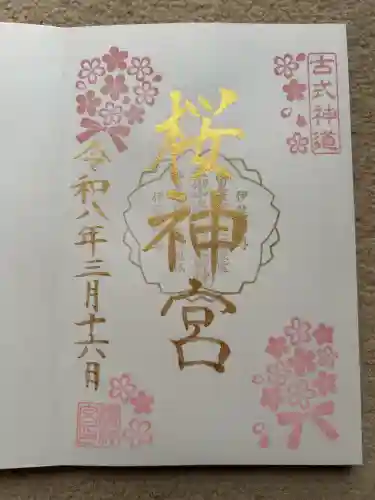 古式神道
桜神宮
令和八年三月十六日